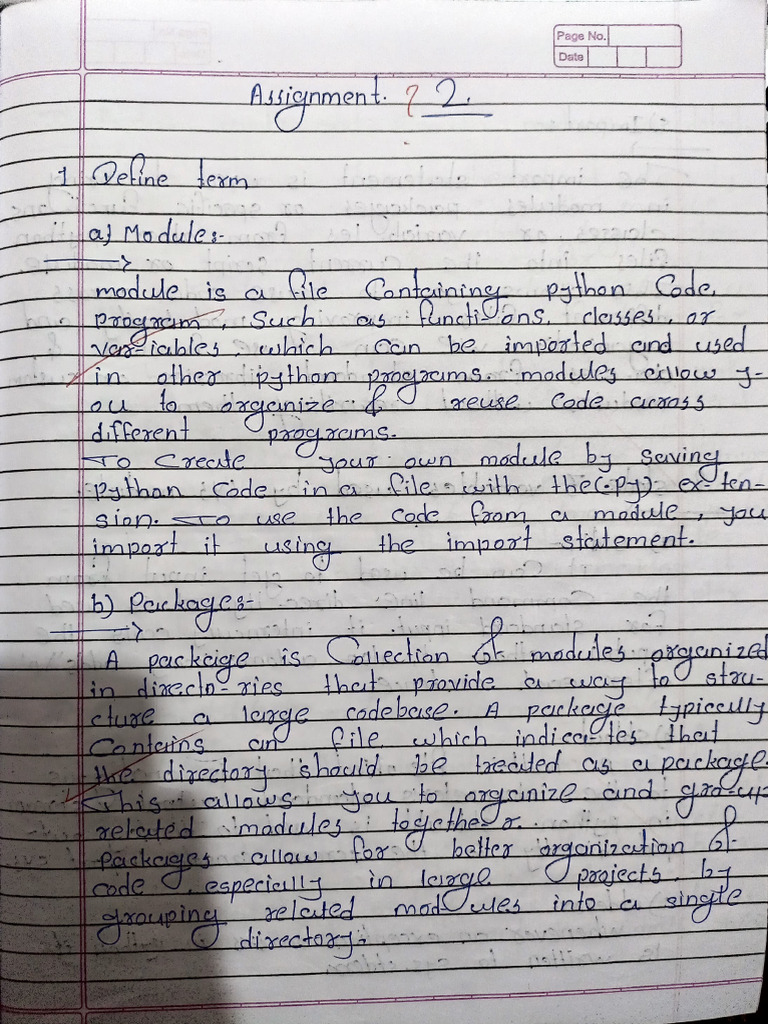 Page No.
Date
Assignment. ? 2.
1 Define term
a) Module:-
module is a file Containing python Code,
program such as functi-ons, classes, or
var-iables, which can be imported and used
in other python programs. modules allow y-
ou to organize & reuse code across
different programs.
To Create your own module by saving
python code in a file with the (.py) ex-ten-
sion. To use the code from a module, you
import it using the import statement.
b) Package:-
A package is Collection of modules organized
in directo-ries that provide a way to stru-
cture a large codebase. A package typically
Contains an file which indica-tes that
the directory should be treated as a package.
This allows you to organize and gro-up
related modules together.
packages allow for better organization of
code, especially in large projects, by
grouping related modules into a single
directory.